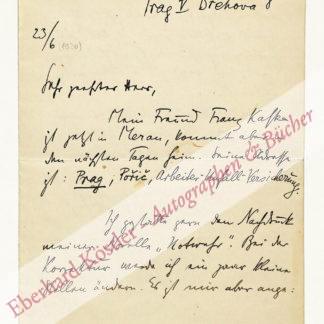 Prag V Břehova 8
23/6 (1920)
Sehr geehrter Herr,
Mein Freund Franz Kafka
ist jetzt in Meran, kommt aber
den nächsten Tagen heim. Seine Adresse
ist: Prag, Pořič, Arbeiter-Unfall-Versicherung.
Ich gestatte gern den Nachdruck
meiner Novelle „Notwehr". Bei der
Korrektur werde ich ein paar kleine
Stellen ändern. Es ist mir aber ange-
Eberhard Köstler Autographen & Bücher